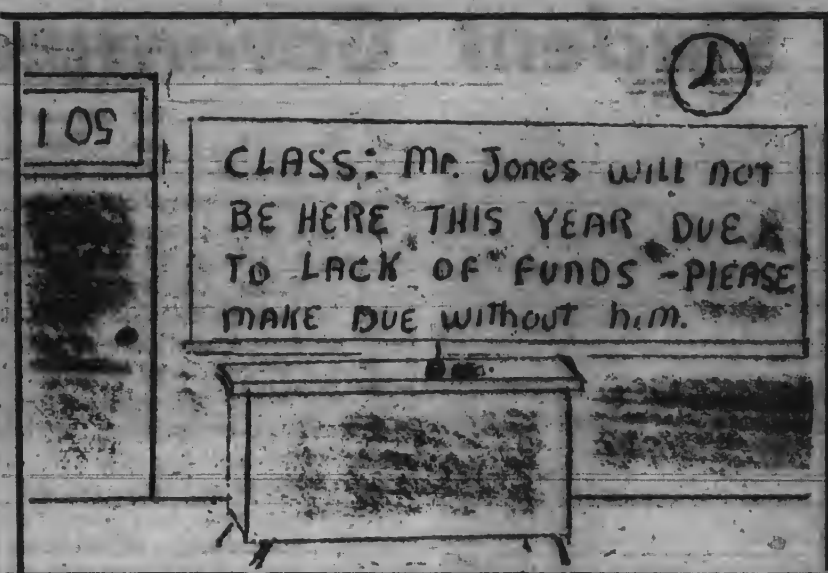 105
CLASS: Mr. Jones will not
BE HERE THIS YEAR DUE
TO LACK OF FUNDS - PLEASE
MAKE DUE without him.